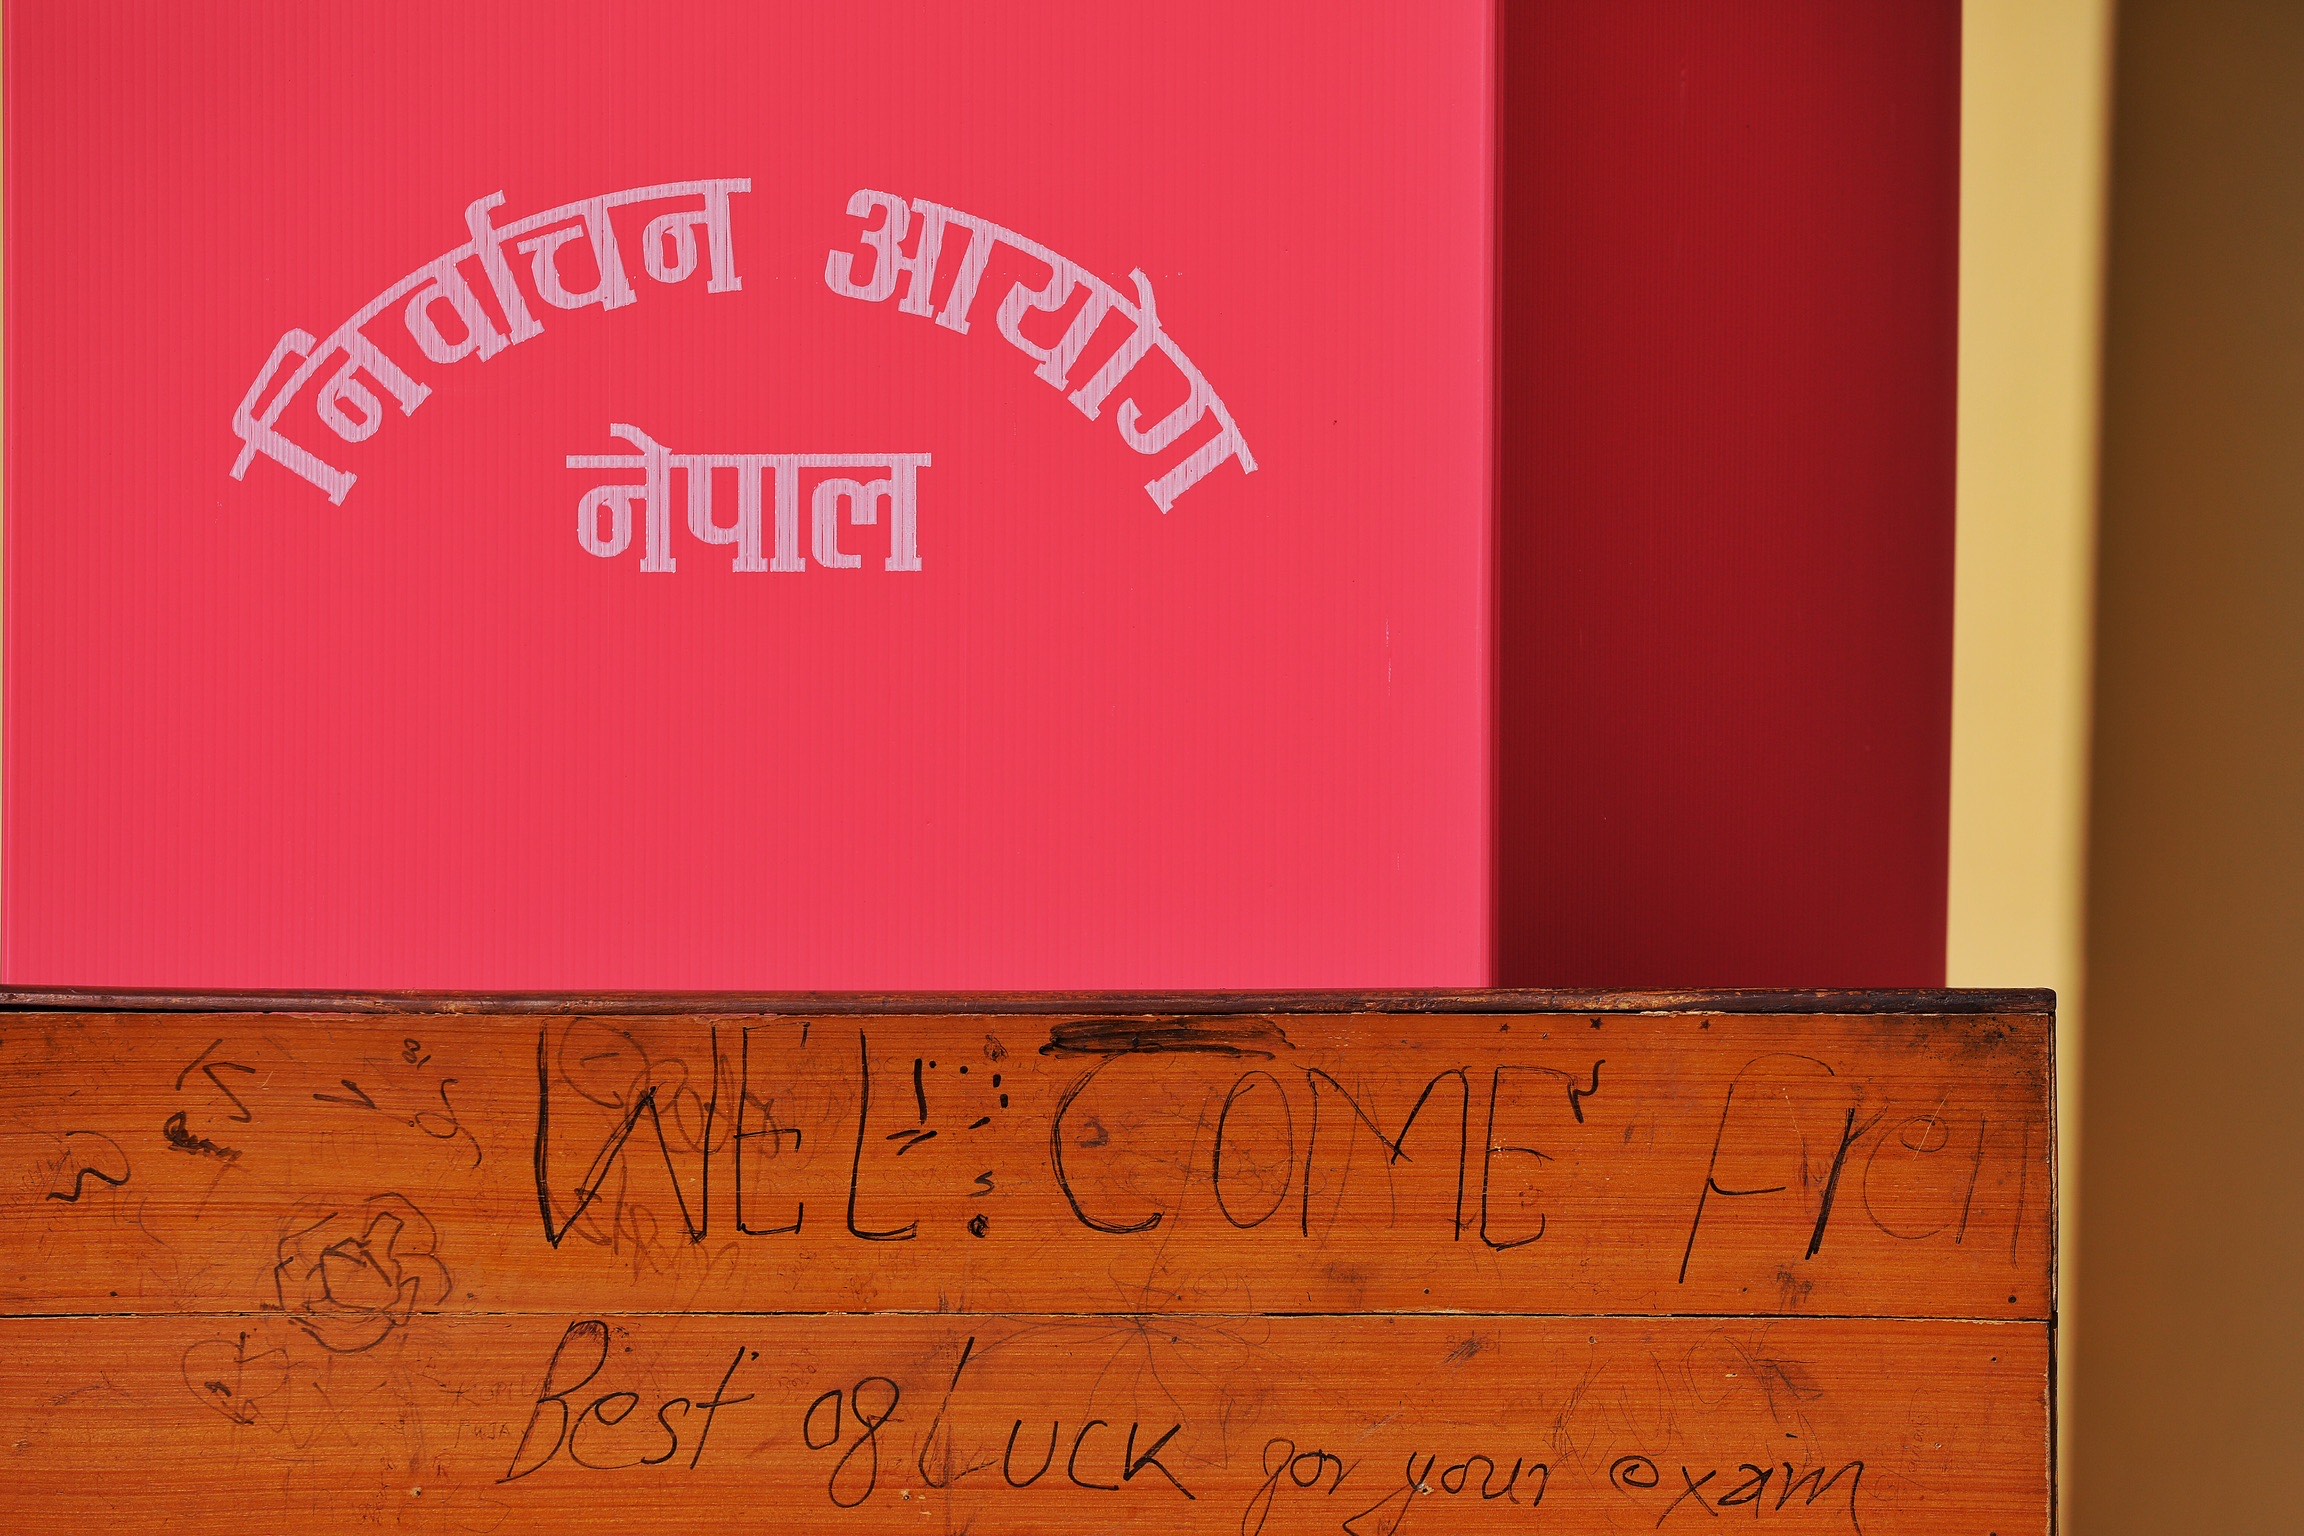 निर्वाचन आयोग
नेपाल
WEL COME
Best of Luck for your exam